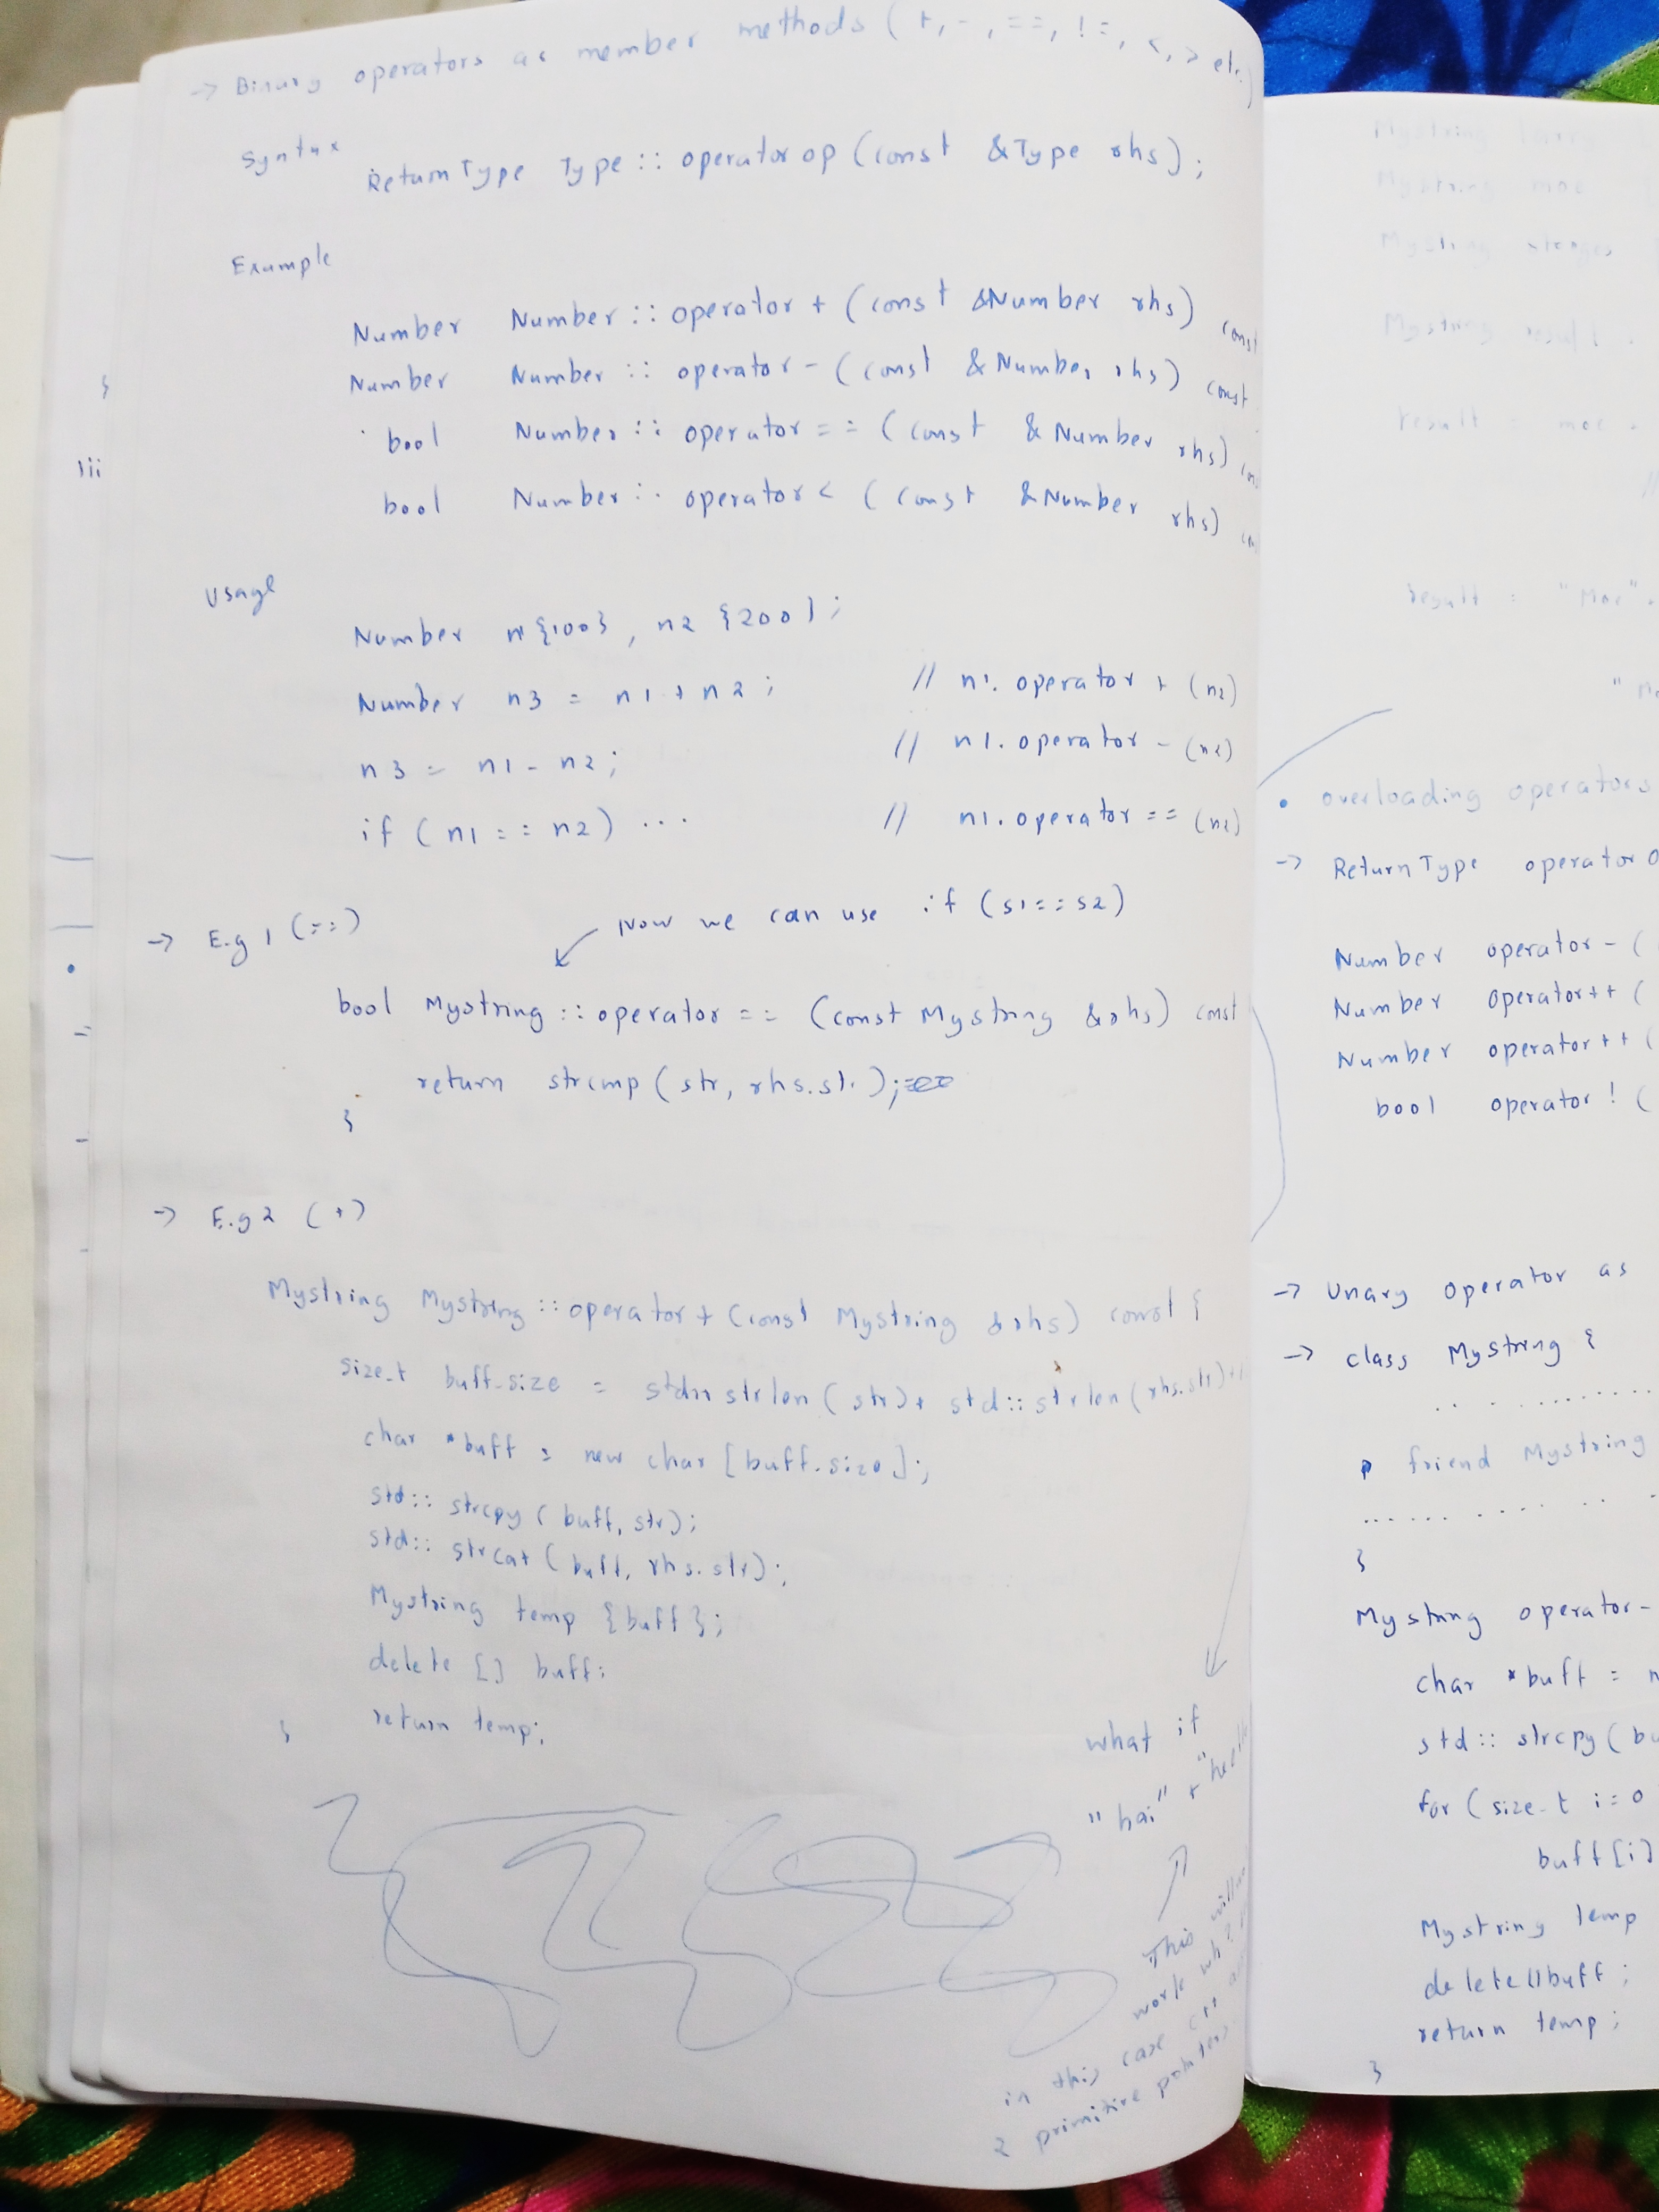 → Binary operators as member methods ( +, -, ==, !=, <, > etc.)
Syntax
ReturnType Type :: operator op (const &Type rhs);
Example
Number Number :: operator + (const &Number rhs) const
Number Number :: operator - (const &Number rhs) const
bool Number :: operator == (const &Number rhs)
bool Number :: operator < (const &Number rhs)
Usage
Number n1{100}, n2 {200};
Number n3 = n1 + n2; // n1. operator + (n2)
n3 = n1 - n2; // n1. operator - (n2)
if (n1 == n2) ... // n1. operator == (n2)
→ E.g 1 (==)
Now we can use if (s1 == s2)
bool Mystring :: operator == (const Mystring &rhs) const
return strcmp (str, rhs.str);
}
→ E.g 2 (+)
Mystring Mystring :: operator + (const Mystring &rhs) const {
size_t buff_size = std:: strlen (str) + std:: strlen (rhs.str)+
char *buff = new char [buff_size];
std:: strcpy ( buff, str);
std:: strcat ( buff, rhs.str);
Mystring temp {buff};
delete [] buff;
return temp;
}
what if
"hai" +
This
work
in this case
2 primitive pointers
Mystring larry
Mystring moe
Mystring stooges
Mystring result
result = moe
result = "Moe"
• overloading operators
→ ReturnType operator
Number operator - (
Number operator++ (
Number operator++ (
bool operator ! (
→ Unary operator as
→ class Mystring {
..........
friend Mystring
..........
}
Mystring operator-
char *buff =
std:: strcpy (
for (size_t i = 0
buff [i]
Mystring temp
delete[]buff;
return temp;
}